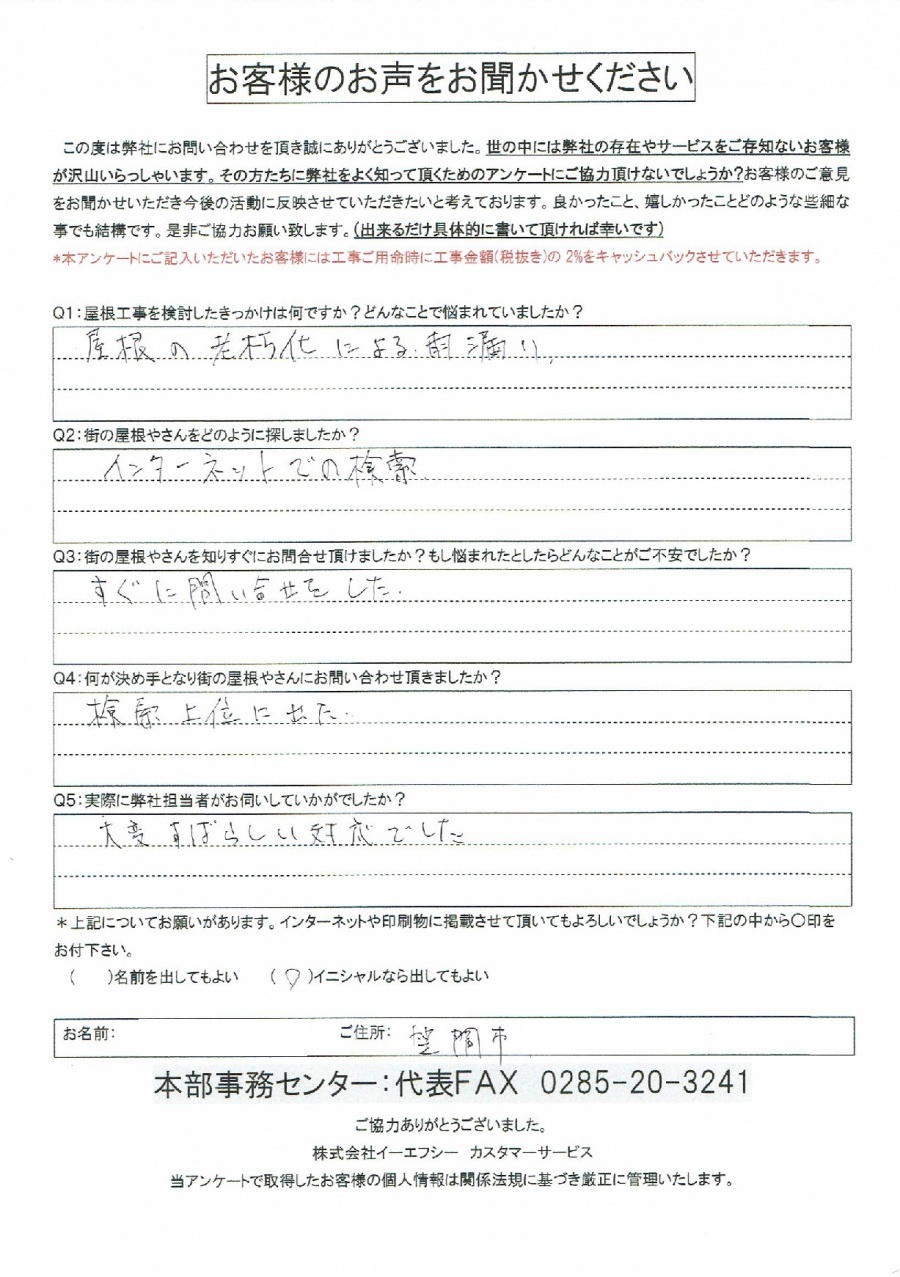 お客様のお声をお聞かせください
この度は弊社にお問い合わせを頂き誠にありがとうございました。世の中には弊社の存在やサービスをご存知ないお客様
が沢山いらっしゃいます。その方たちに弊社をよく知って頂くためのアンケートにご協力頂けないでしょうか?お客様のご意見
をお聞かせいただき今後の活動に反映させていただきたいと考えております。良かったこと、嬉しかったことどのような些細な
事でも結構です。是非ご協力お願い致します。(出来るだけ具体的に書いて頂ければ幸いです)
*本アンケートにご記入いただいたお客様には工事ご用命時に工事金額(税抜き)の 2%をキャッシュバックさせていただきます。
Q1:屋根工事を検討したきっかけは何ですか?どんなことで悩まれていましたか?
屋根の老朽化による雨漏り、
Q2:街の屋根やさんをどのように探しましたか?
インターネットでの検索
Q3:街の屋根やさんを知りすぐにお問合せ頂けましたか?もし悩まれたとしたらどんなことがご不安でしたか?
すぐに問い合せをした.
Q4:何が決め手となり街の屋根やさんにお問い合わせ頂きましたか?
検索上位に出た.
Q5:実際に弊社担当者がお伺いしていかがでしたか?
大変すばらしい対応でした
*上記についてお願いがあります。インターネットや印刷物に掲載させて頂いてもよろしいでしょうか?下記の中から〇印を
お付下さい。
( )名前を出してもよい (○)イニシャルなら出してもよい
お名前: ご住所: 笠間市
本部事務センター:代表FAX 0285-20-3241
ご協力ありがとうございました。
株式会社イーエフシー カスタマーサービス
当アンケートで取得したお客様の個人情報は関係法規に基づき厳正に管理いたします。